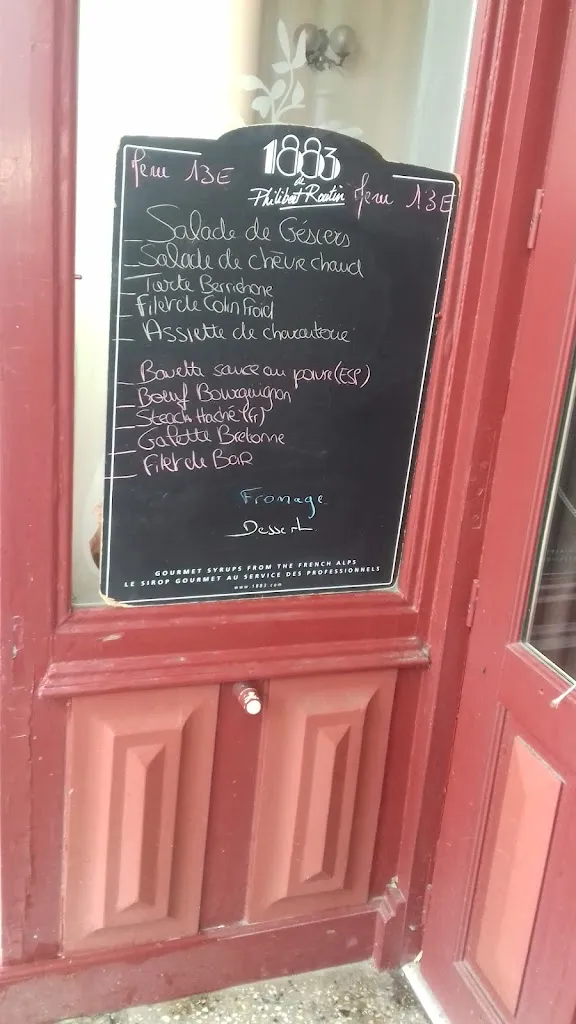 1883
de
Philibert Routin
Menu 13E
Menu 13E
_ Salade de Gésiers
_ Salade de chèvre chaud
_ Tarte Berrichone
_ Filet de Colin Froid
_ Assiette de charcuterie
_ Bavette sauce au poivre (ESP)
_ Boeuf Bourguignon
_ Steack Haché (Fr)
_ Galette Bretonne
_ Filet de BAR
Fromage
Dessert
GOURMET SYRUPS FROM THE FRENCH ALPS
LE SIROP GOURMET AU SERVICE DES PROFESSIONNELS
www.1883.com